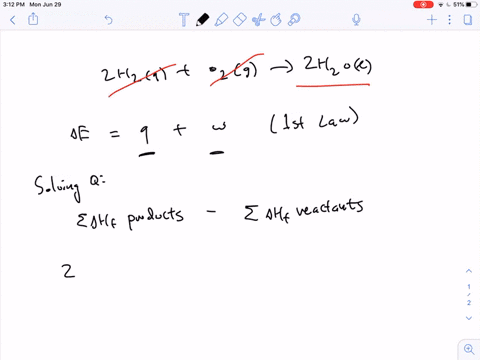 3:12 PM Mon Jun 29
51%
2H₂(g) + O₂(g) → 2H₂O(l)
ΔE = q + w (1st Law)
Solving Q:
ΣΔHf products − ΣΔHf reactants
2
1
/
2